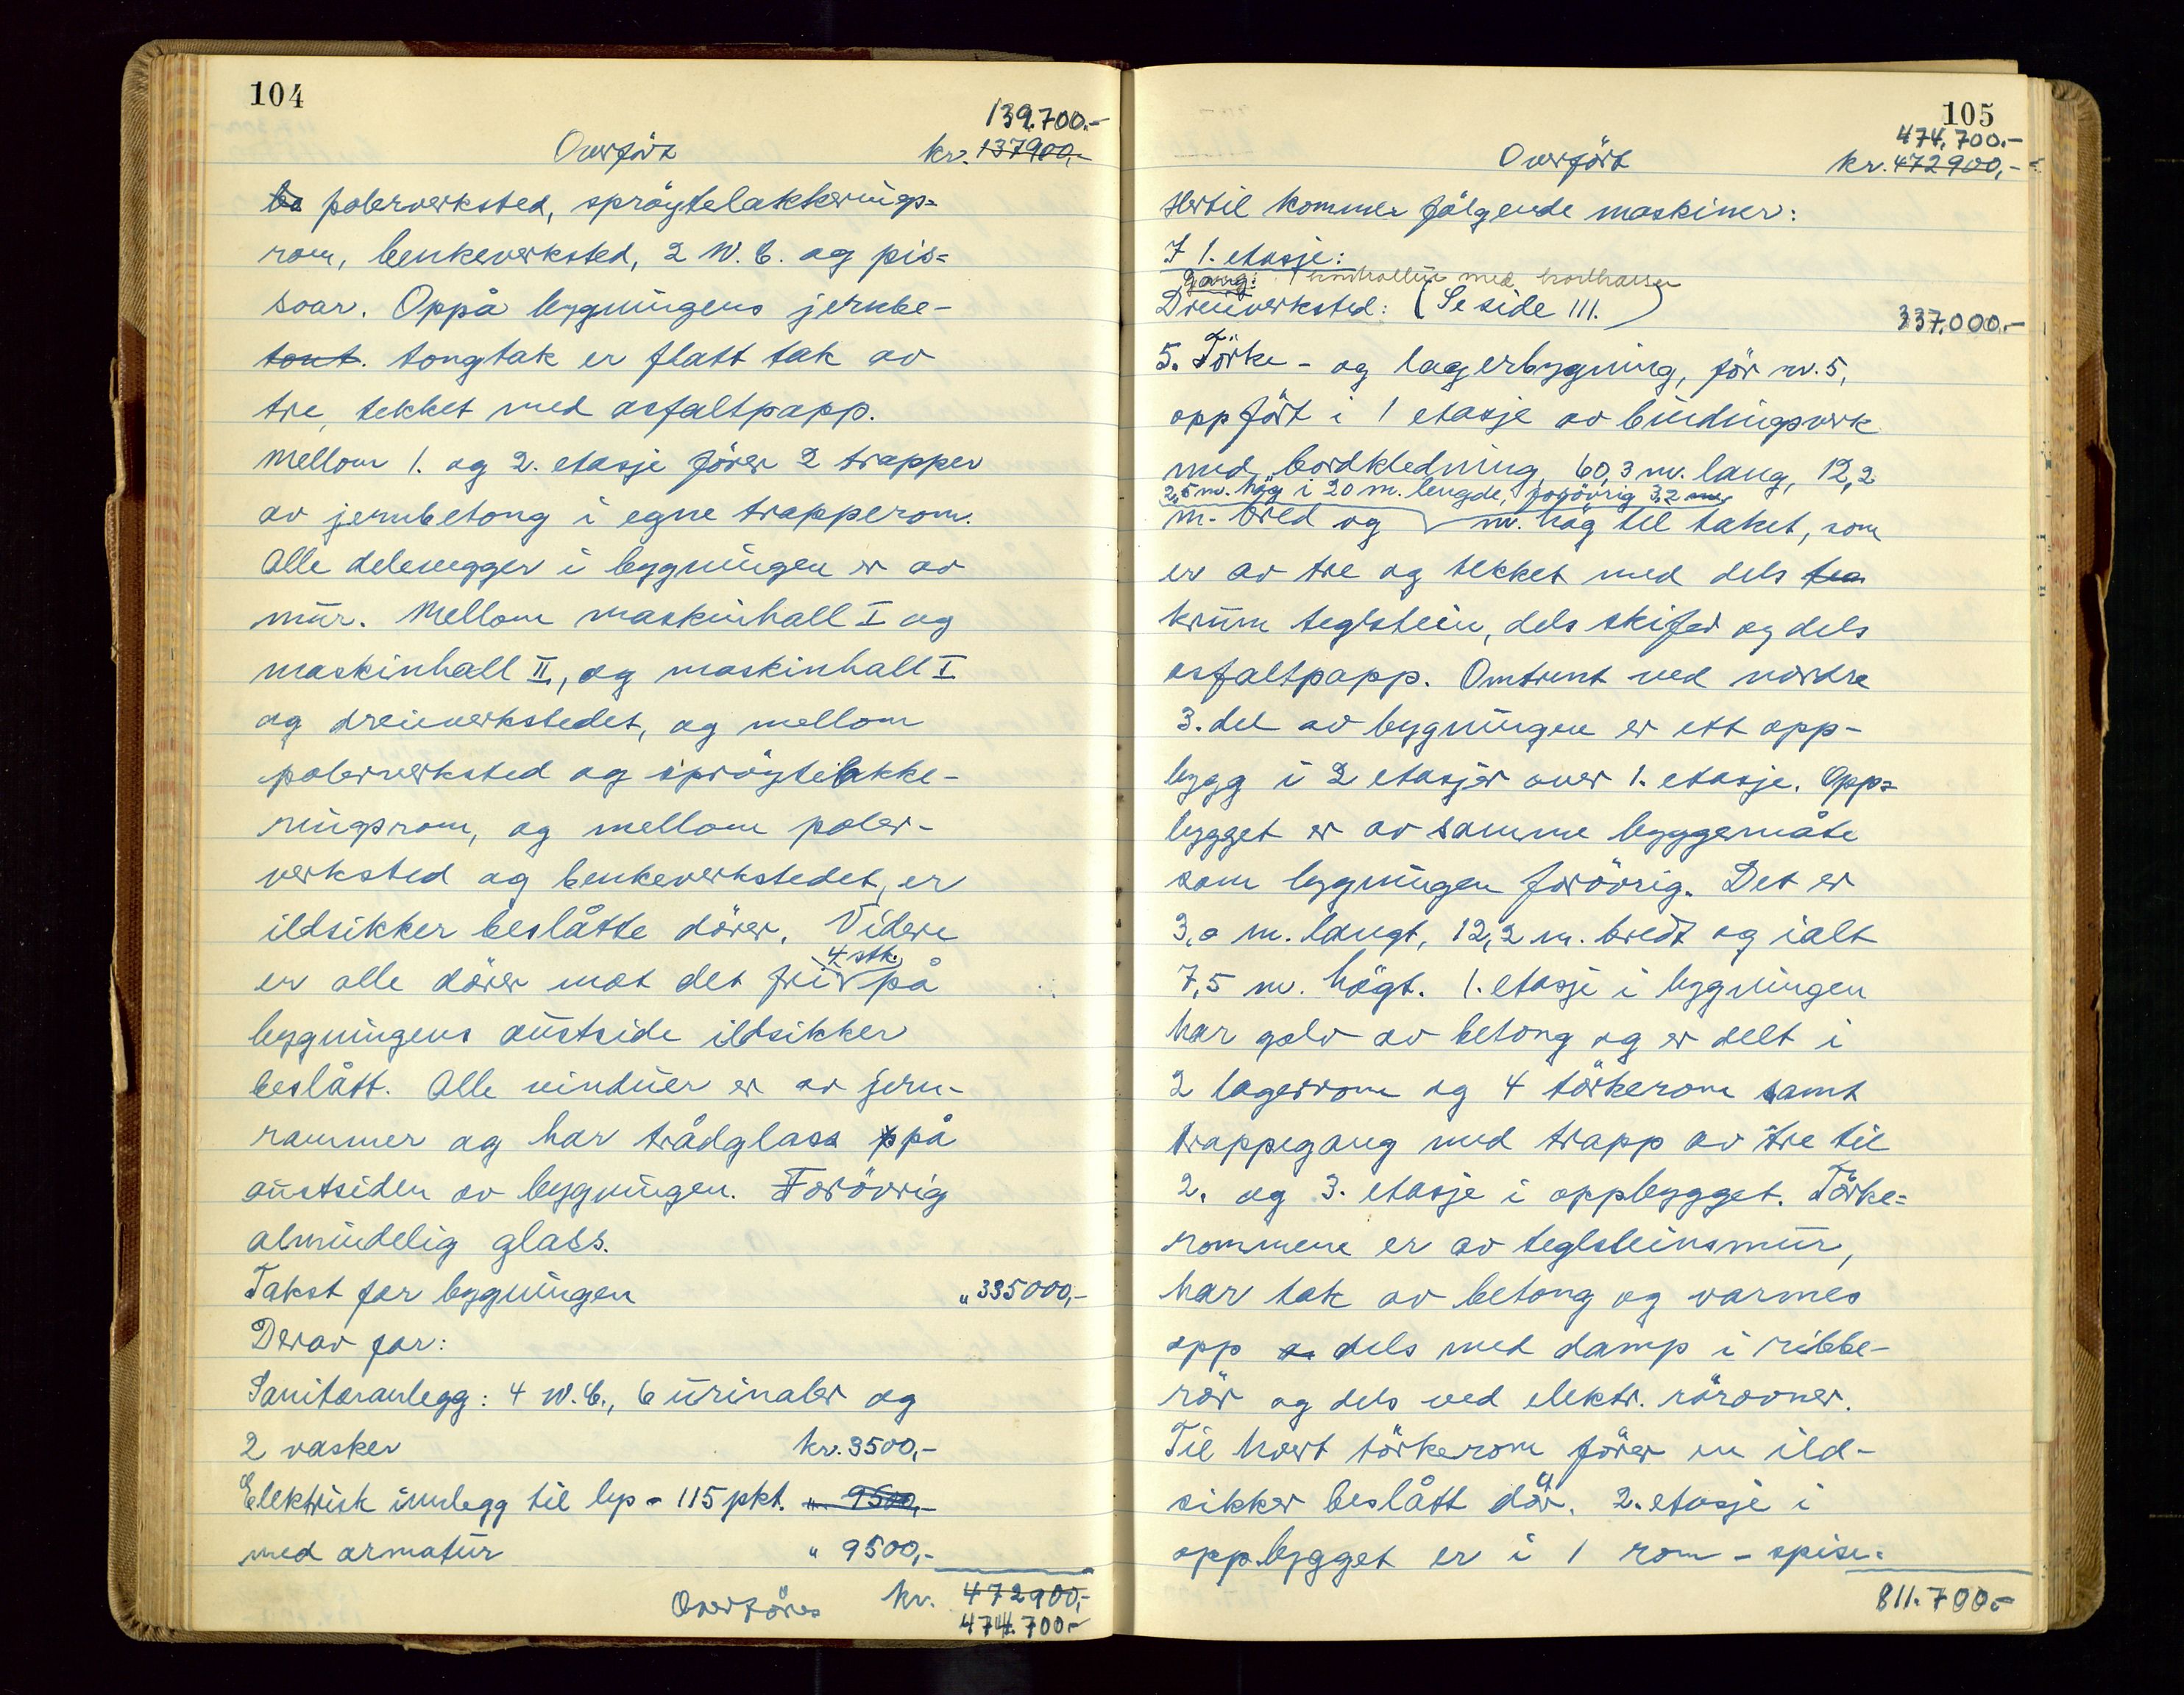 104
139.700.-
Overfört kr. 137900,-
be polerverksted, spröytelakkerings=
rom, benkeverksted, 2 W.C. og pis=
soar. Oppå bygningens jernbe-
tont. tongtak er flatt tak av
tre, tekket med asfaltpapp.
Mellom 1. og 2. etasje förer 2 trapper
av jernbetong i egne trapperom.
Alle delevegger i bygningen er av
mur. Mellom maskinhall I og
maskinhall II, og maskinhall I
og dreieverkstedet, og mellom
polerverksted og spröytelakke-
ringsrom, og mellom poler-
verksted og benkeverkstedet, er
ildsikker beslåtte dörer. Videre
4 stk.
er alle dörer mot det fri på
bygningens austside ildsikker
beslått. Alle vinduer er av jern-
rammer og har trådglass på
austsiden av bygningen. Forövrig
almindelig glass.
Takst for bygningen " 335000,-
Derav for:
Sanitæranlegg: 4 W.C., 6 urinaler og
2 vasker kr. 3500,-
Elektrisk innlegg til lys - 115 pkt. " 9500,-
med armatur " 9500,-
Overföres kr. 472900,-
474.700.-
105
474,700.-
Overfört kr. 472900,-
Hertil kommer fölgende maskiner:
I 1. etasje:
Gang: 1 med
Dreieverksted: (Se side 111.) 337,000.-
5. Törke- og lagerbygning, för nr. 5,
oppfört i 1 etasje av bindingsverk
med bordkledning, 60,3 m. lang, 12,2
2,5 m. hög i 20 m. lengde, forövrig 3,2 m.
m. bred og m. hög til taket, som
er av tre og tekket med dels
krum teglstein, dels skifer og dels
asfaltpapp. Omtrent ved nordre
3. del av bygningen er ett opp-
bygg i 2 etasjer over 1. etasje. Opp=
bygget er av samme byggemåte
som bygningen forövrig. Det er
3,0 m. langt, 12,2 m. bredt og ialt
7,5 m. högt. 1. etasje i bygningen
har golv av betong og er delt i
2 lagerrom og 4 törkerom samt
trappegang med trapp av tre til
2. og 3. etasje i oppbygget. Törke=
rommene er av teglsteinsmur,
har tak av betong og varmes
opp dels med damp i ribbe-
rör og dels ved elektr. rörovner.
Til hvert törkerom förer en ild-
sikker beslått dör. 2. etasje i
oppbygget er i 1 rom - spise=
811.700.-